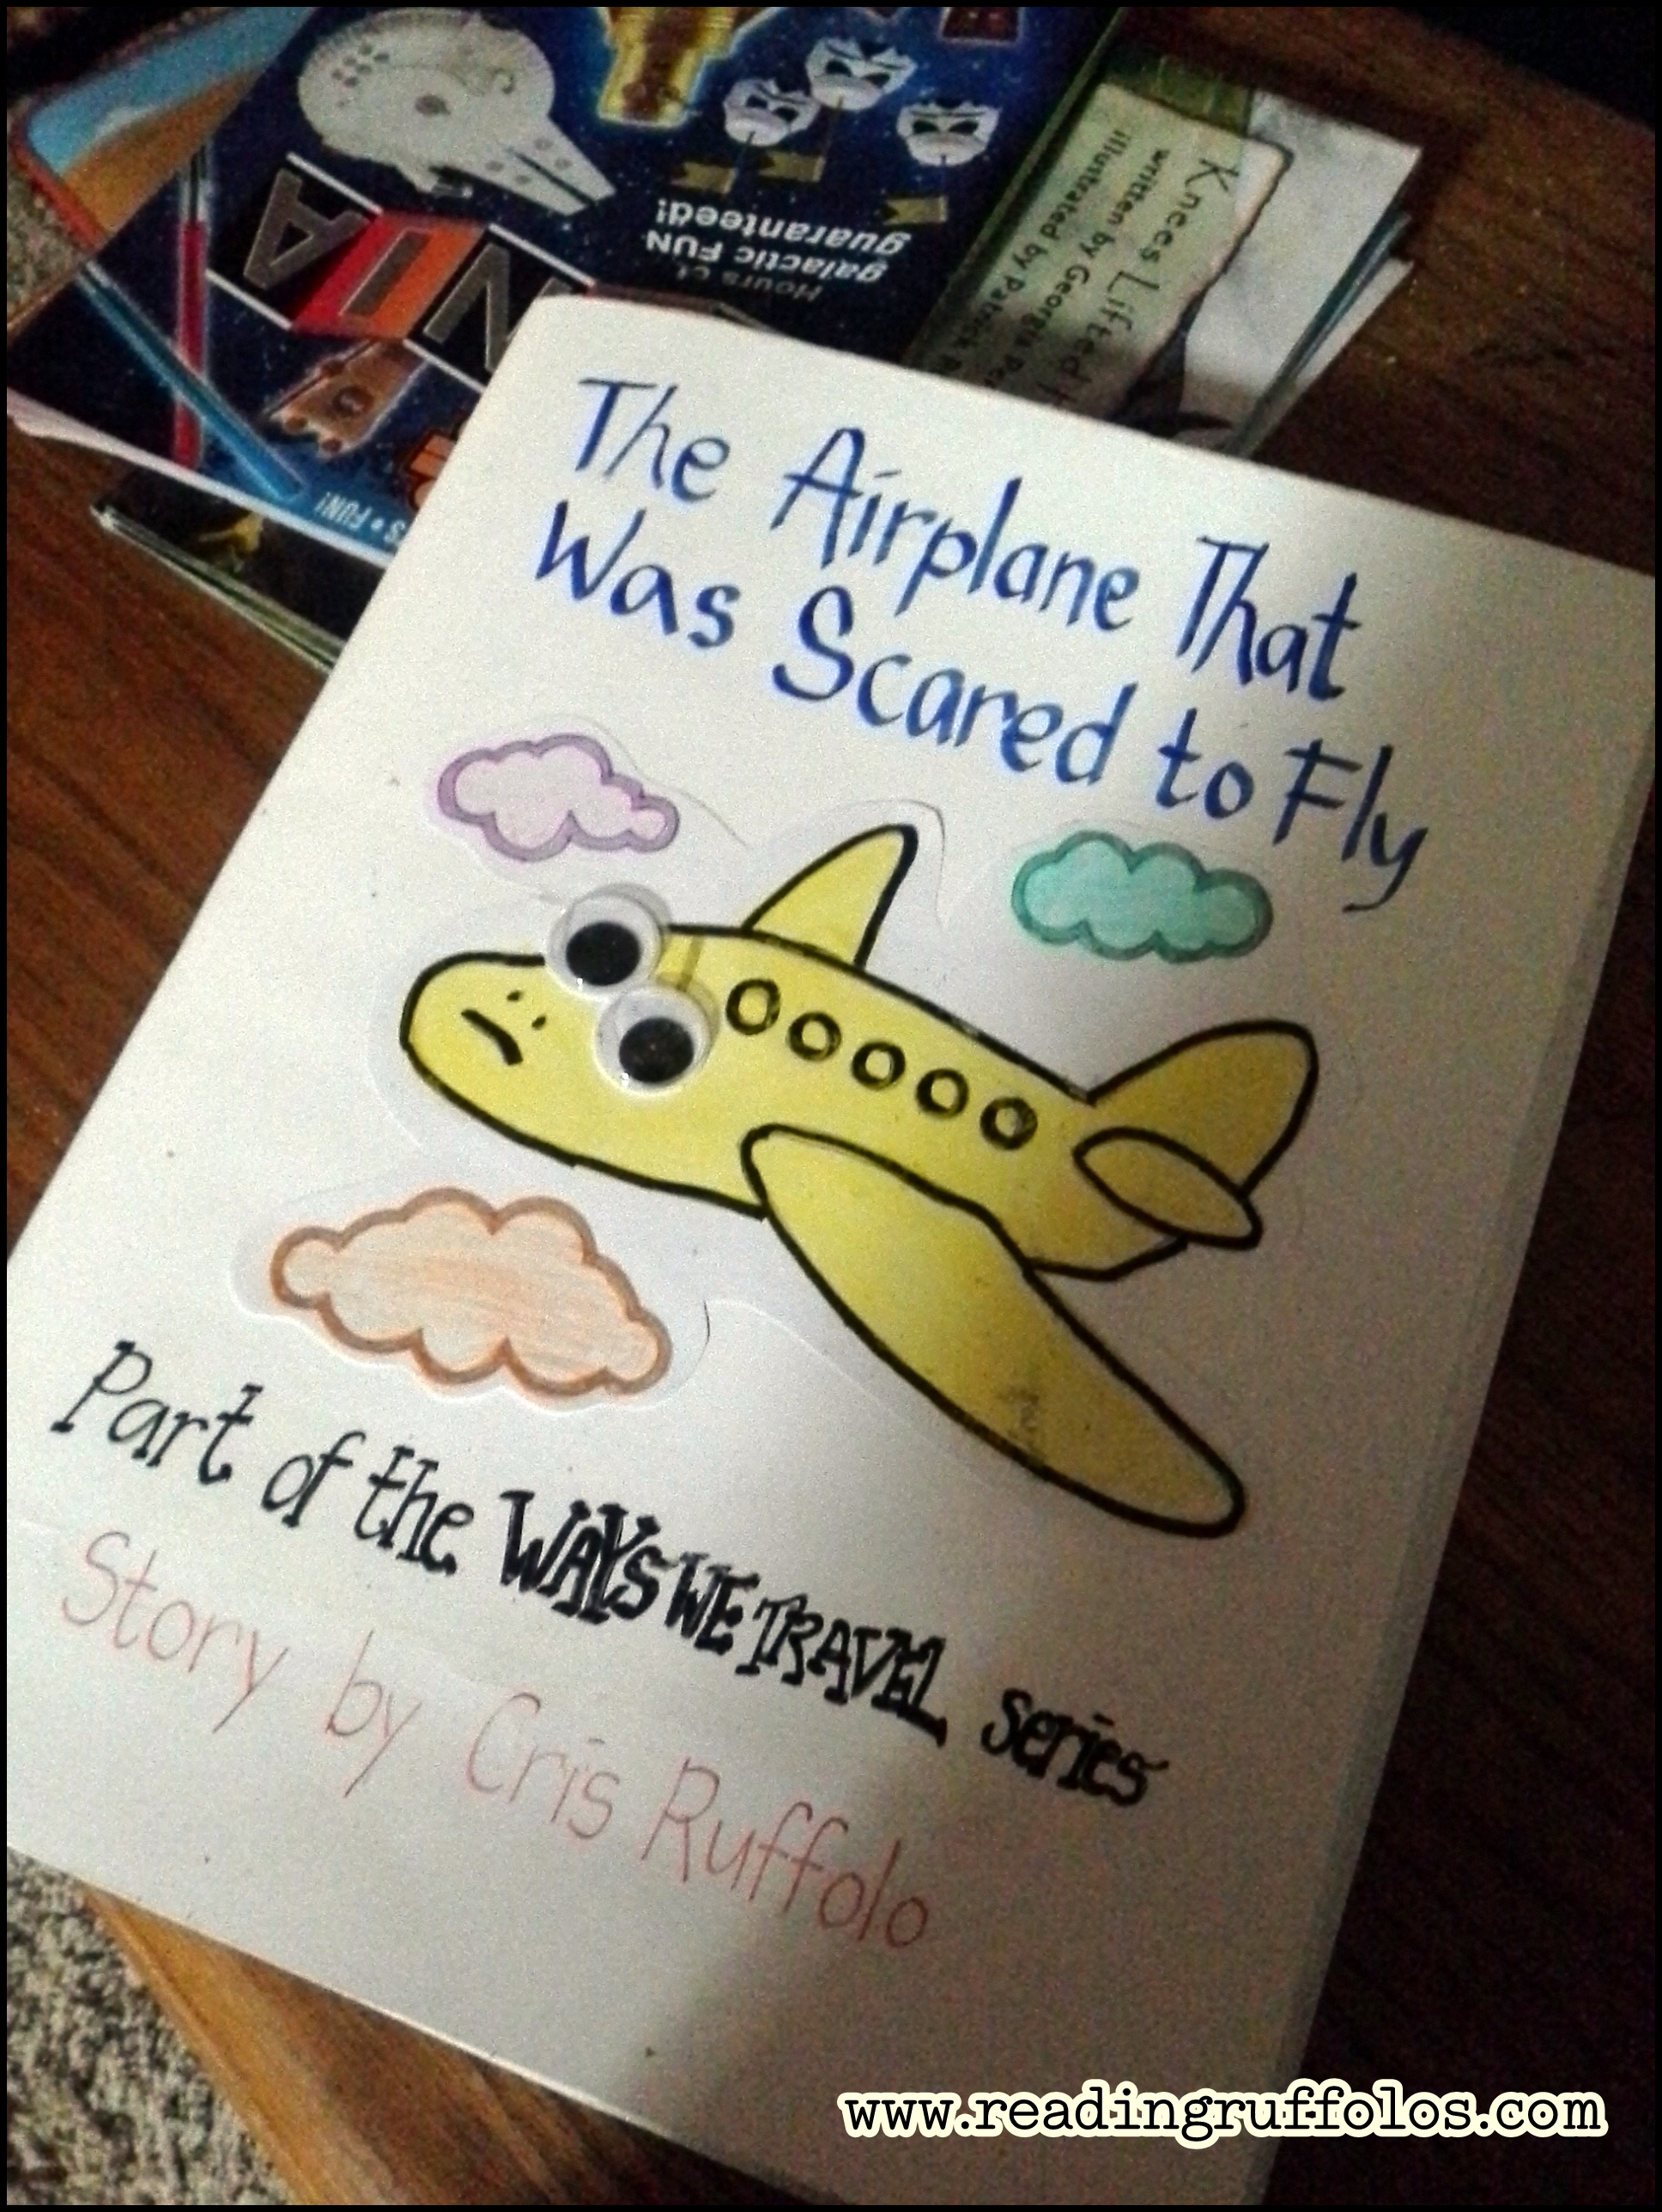 The Airplane That
Was Scared to Fly
Part of the WAYS WE TRAVEL series
Story by Cris Ruffolo
Hours of
galactic FUN
guaranteed!
NIA
S • FUN!
Knees Lifted
written by Georgia
illustrated by Patrick
www.readingruffolos.com